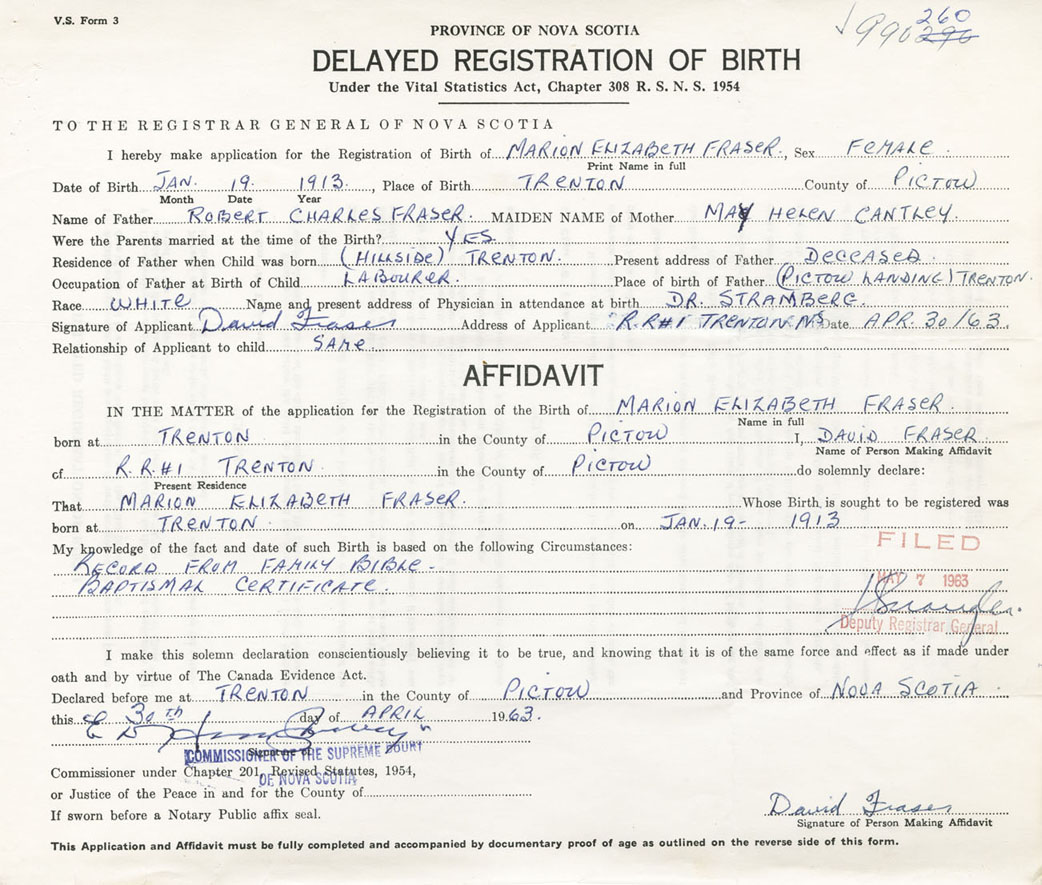 V.S. Form 3
PROVINCE OF NOVA SCOTIA
990 290 260
DELAYED REGISTRATION OF BIRTH
Under the Vital Statistics Act, Chapter 308 R. S. N. S. 1954
TO THE REGISTRAR GENERAL OF NOVA SCOTIA
I hereby make application for the Registration of Birth of MARION ELIZABETH FRASER, Sex FEMALE.
Print Name in full
Date of Birth JAN. 19. 1913., Place of Birth TRENTON County of PICTOW
Month Date Year
Name of Father ROBERT CHARLES FRASER. MAIDEN NAME of Mother MAY HELEN CANTLEY.
Were the Parents married at the time of the Birth? YES.
Residence of Father when Child was born (HILLSIDE) TRENTON. Present address of Father DECEASED.
Occupation of Father at Birth of Child LABOURER. Place of birth of Father (PICTOW LANDING) TRENTON.
Race WHITE Name and present address of Physician in attendance at birth DR. STRAMBERG.
Signature of Applicant David Fraser Address of Applicant R.R#1 TRENTON NS Date APR. 30/63.
Relationship of Applicant to child SAME.
AFFIDAVIT
IN THE MATTER of the application for the Registration of the Birth of MARION ELIZABETH FRASER.
Name in full
born at TRENTON in the County of PICTOW I, DAVID FRASER.
Name of Person Making Affidavit
of R.R.#1 TRENTON. in the County of PICTOW do solemnly declare:
Present Residence
That MARION ELIZABETH FRASER. Whose Birth is sought to be registered was
born at TRENTON. on JAN. 19- 1913
My knowledge of the fact and date of such Birth is based on the following Circumstances:
FILED
RECORD FROM FAMILY BIBLE.
BAPTISMAL CERTIFICATE.
MAY 7 1963
Deputy Registrar General
I make this solemn declaration conscientiously believing it to be true, and knowing that it is of the same force and effect as if made under
oath and by virtue of The Canada Evidence Act.
Declared before me at TRENTON in the County of PICTOW and Province of NOVA SCOTIA.
this 30th day of APRIL 1963.
Signature of
COMMISSIONER OF THE SUPREME COURT
OF NOVA SCOTIA
Commissioner under Chapter 201, Revised Statutes, 1954,
or Justice of the Peace in and for the County of
If sworn before a Notary Public affix seal.
David Fraser
Signature of Person Making Affidavit
This Application and Affidavit must be fully completed and accompanied by documentary proof of age as outlined on the reverse side of this form.